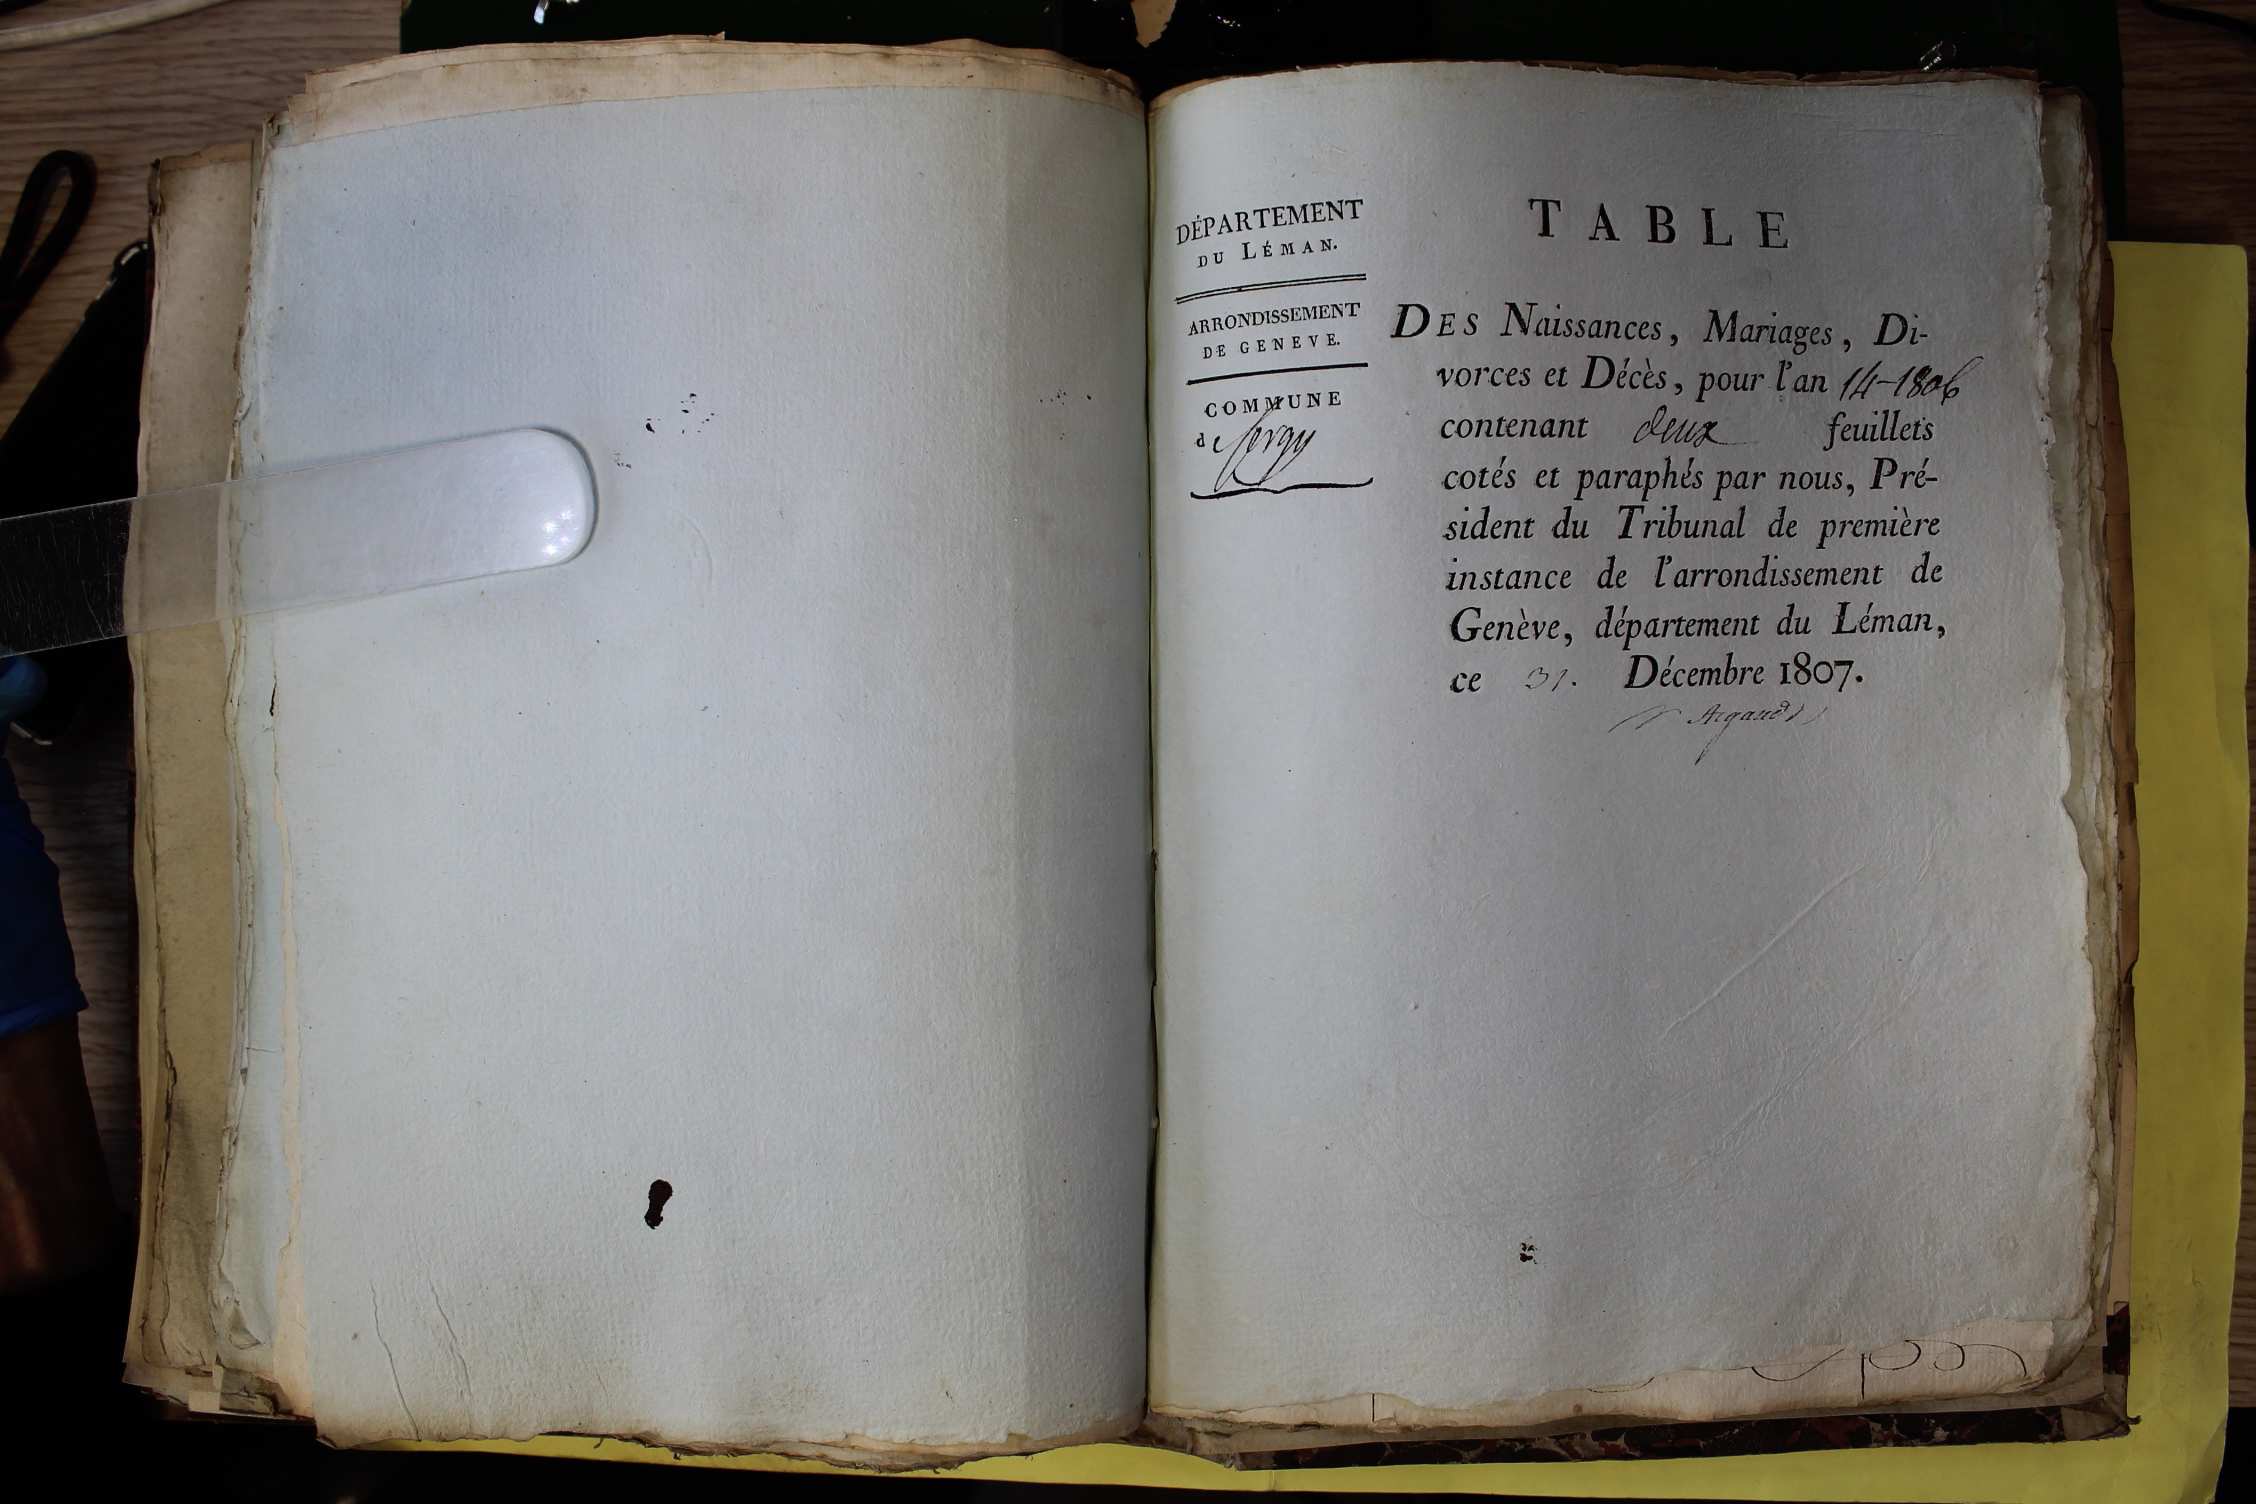 DÉPARTEMENT
DU LÉMAN.
ARRONDISSEMENT
DE GENEVE.
COMMUNE
de Sergy
TABLE
DES Naissances, Mariages, Di-
vorces et Décès, pour l'an 14-1806
contenant deux feuillets
cotés et paraphés par nous, Pré-
sident du Tribunal de première
instance de l'arrondissement de
Genève, département du Léman,
ce 31. Décembre 1807.
Argand